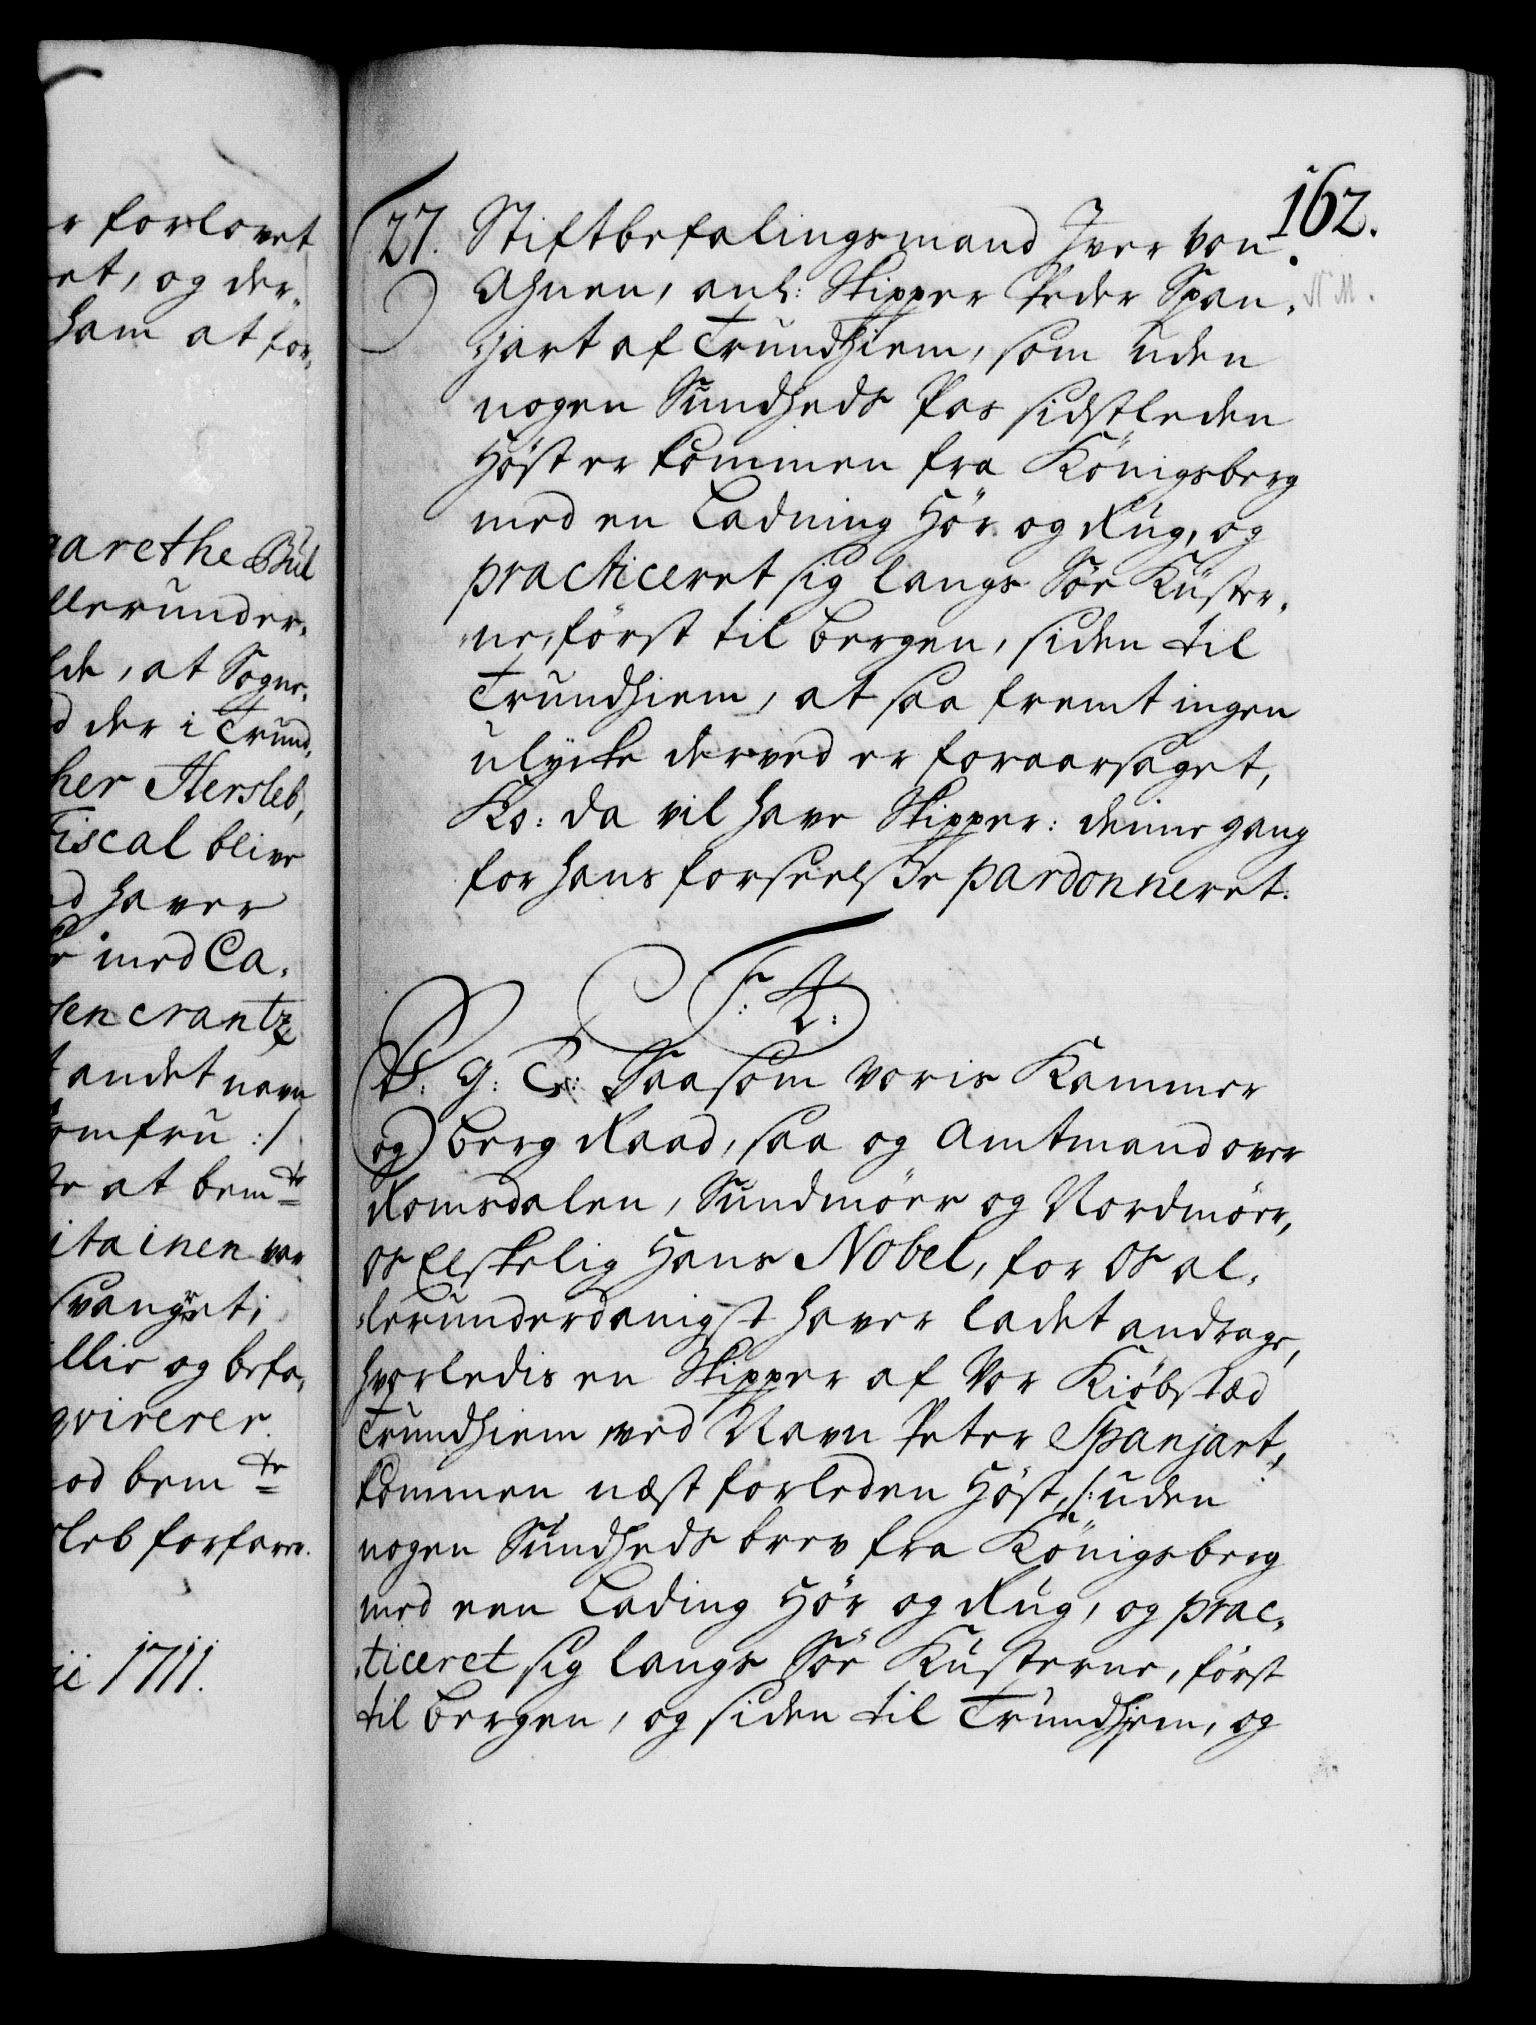 r forlovet
et, og der-
ham at for-
garethe Bul
llerunder-
lde, at Sogne-
d der i Trund-
her Hersleb,
Fiscal blive
d haver
med Ca-
sencrantz
t andet navn
omfru :/
te at bemte
itainen var
svanget;
llie og befa-
qvirerer.
od bemte
leb forfarer.
ii 1711.
162.
27. Stiftbefalingsmand Iver von
Ahnen, anl: Skipper Peder Span-
jart af Trundhiem, som uden
nogen Sundheds Pas sidstleden
Höst er kommen fra Königsberg
med en Ladning Hör og Rug, og
practiceret sig langs Söe Küster-
ne, först til Bergen, siden til
Trundhiem, at saa fremt ingen
ulycke derved er foraarsaget,
Ko: da vil have Skipper: denne gang
for hans forseelsse pardonneret.
F. 4.
V: G: T: Saasom voris Kammer
og Berg Raad, saa og Amtmand over
Romsdalen, Sundmöer og Nordmöer,
Os Elskelig Hans Nobel, for Os al-
lerunderdanigst haver ladet andrage,
hvorledis en Skipper af Vor Kiøbstæd
Trundhiem ved Navn Peter Spanjart,
kommen næst forleden Höst, /: uden
nogen Sundheds brev fra Königsberg
med een Lading Hör og Rug, og prac-
ticeret sig langs Söe Küsterne, först
til Bergen, og siden til Trundhiem, og